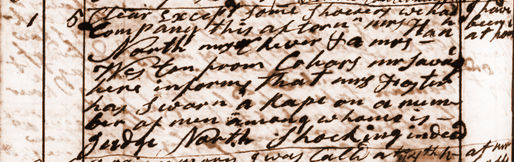 1 5 Clear Except some showers we had I have
Company this aftern mrs been
North River & a mrs at ho
Weston from mr Savag
here informs that mrs Foster
has sworn a Rape on a num
ber of men among whome is
Judge North Shocking indeed
was Calld at at mr